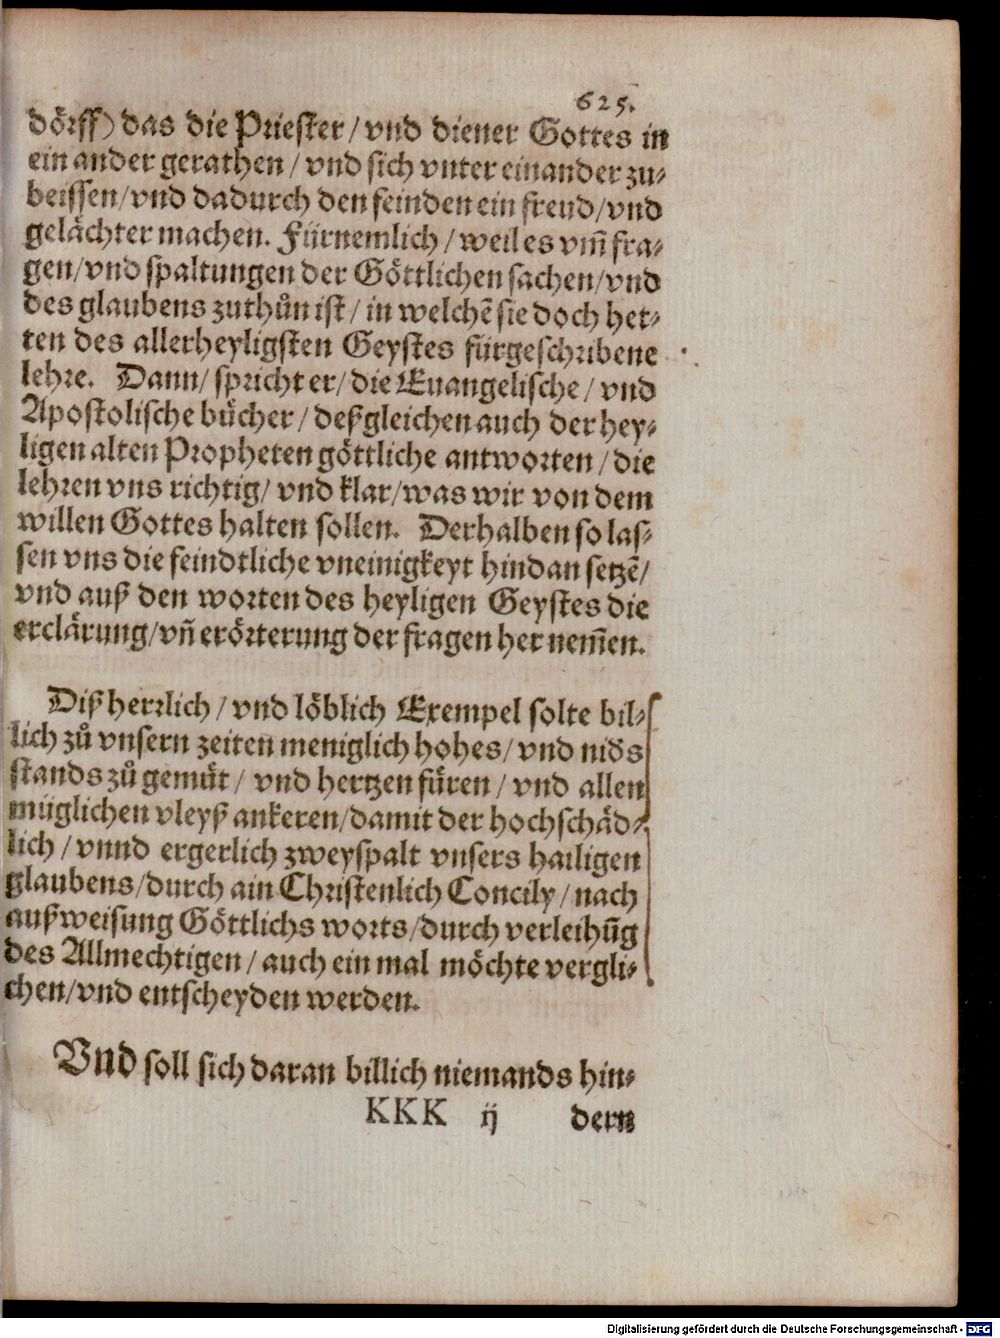 625.
dörff) das die Priester / vnd diener Gottes in
ein ander gerathen / vnd sich vnter einander zu-
beissen/vnd dadurch den feinden ein freud/vnd
gelächter machen. Fürnemlich / weil es vm̃ fra-
gen/vnd spaltungen der Göttlichen sachen/vnd
des glaubens zuthůn ist / in welchẽ sie doch het-
ten des allerheyligsten Geystes fürgeschribene
lehre. Dann/ spricht er/ die Euangelische / vnd
Apostolische bücher / deßgleichen auch der hey-
ligen alten Propheten göttliche antworten / die
lehren vns richtig/ vnd klar/was wir von dem
willen Gottes halten sollen. Derhalben so las-
sen vns die feindtliche vneinigkeyt hindan setzẽ/
vnd auß den worten des heyligen Geystes die
erclärung/vñ erörterung der fragen her nem̃en.
Diß herrlich / vnd löblich Exempel solte bil-
lich zů vnsern zeiten meniglich hohes/ vnd nid̃s
stands zů gemüt / vnd hertzen füren / vnd allen
müglichen vleyß ankeren/damit der hochschäd-
lich / vnnd ergerlich zweyspalt vnsers hailigen
glaubens/durch ain Christenlich Concily / nach
außweisung Göttlichs worts/durch verleihũg
des Allmechtigen / auch ein mal möchte vergli-
chen/vnd entscheyden werden.
Vnd soll sich daran billich niemands hin-
KKK ij dern
Digitalisierung gefördert durch die Deutsche Forschungsgemeinschaft - DFG